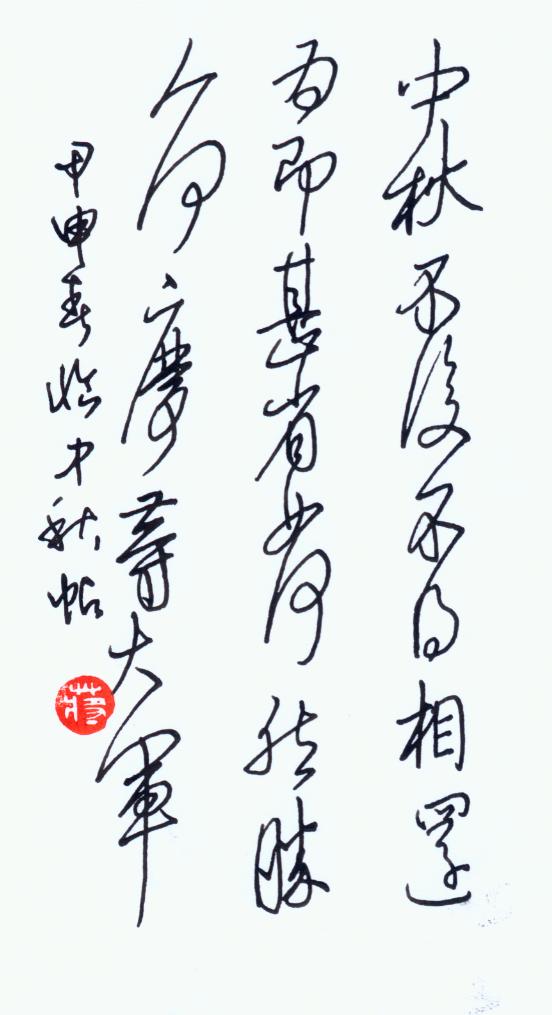 中秋不復不得相還
为即甚省如何然勝
人何慶等大軍
甲申春临中秋帖
蒋